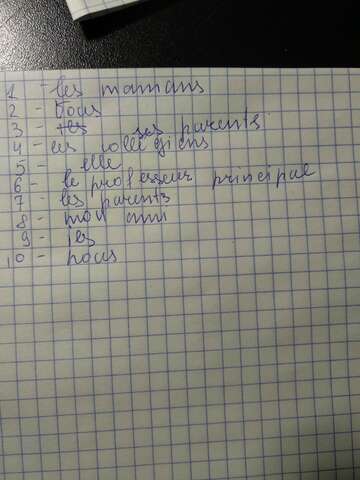 1 - les mamans
2 - Vous
3 - ses parents
4 - les collegiens
5 - elle
6 - le professeur principal
7 - les parents
8 - mon ami
9 - ils
10 - nous